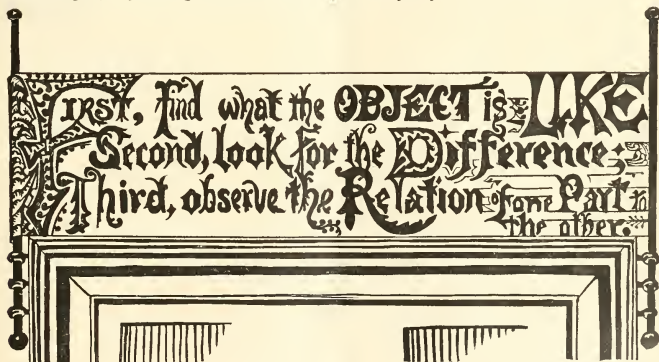 FIRST, find what the OBJECT is LIKE
Second, look for the Difference;
Third, observe the Relation of one Part to
the other.